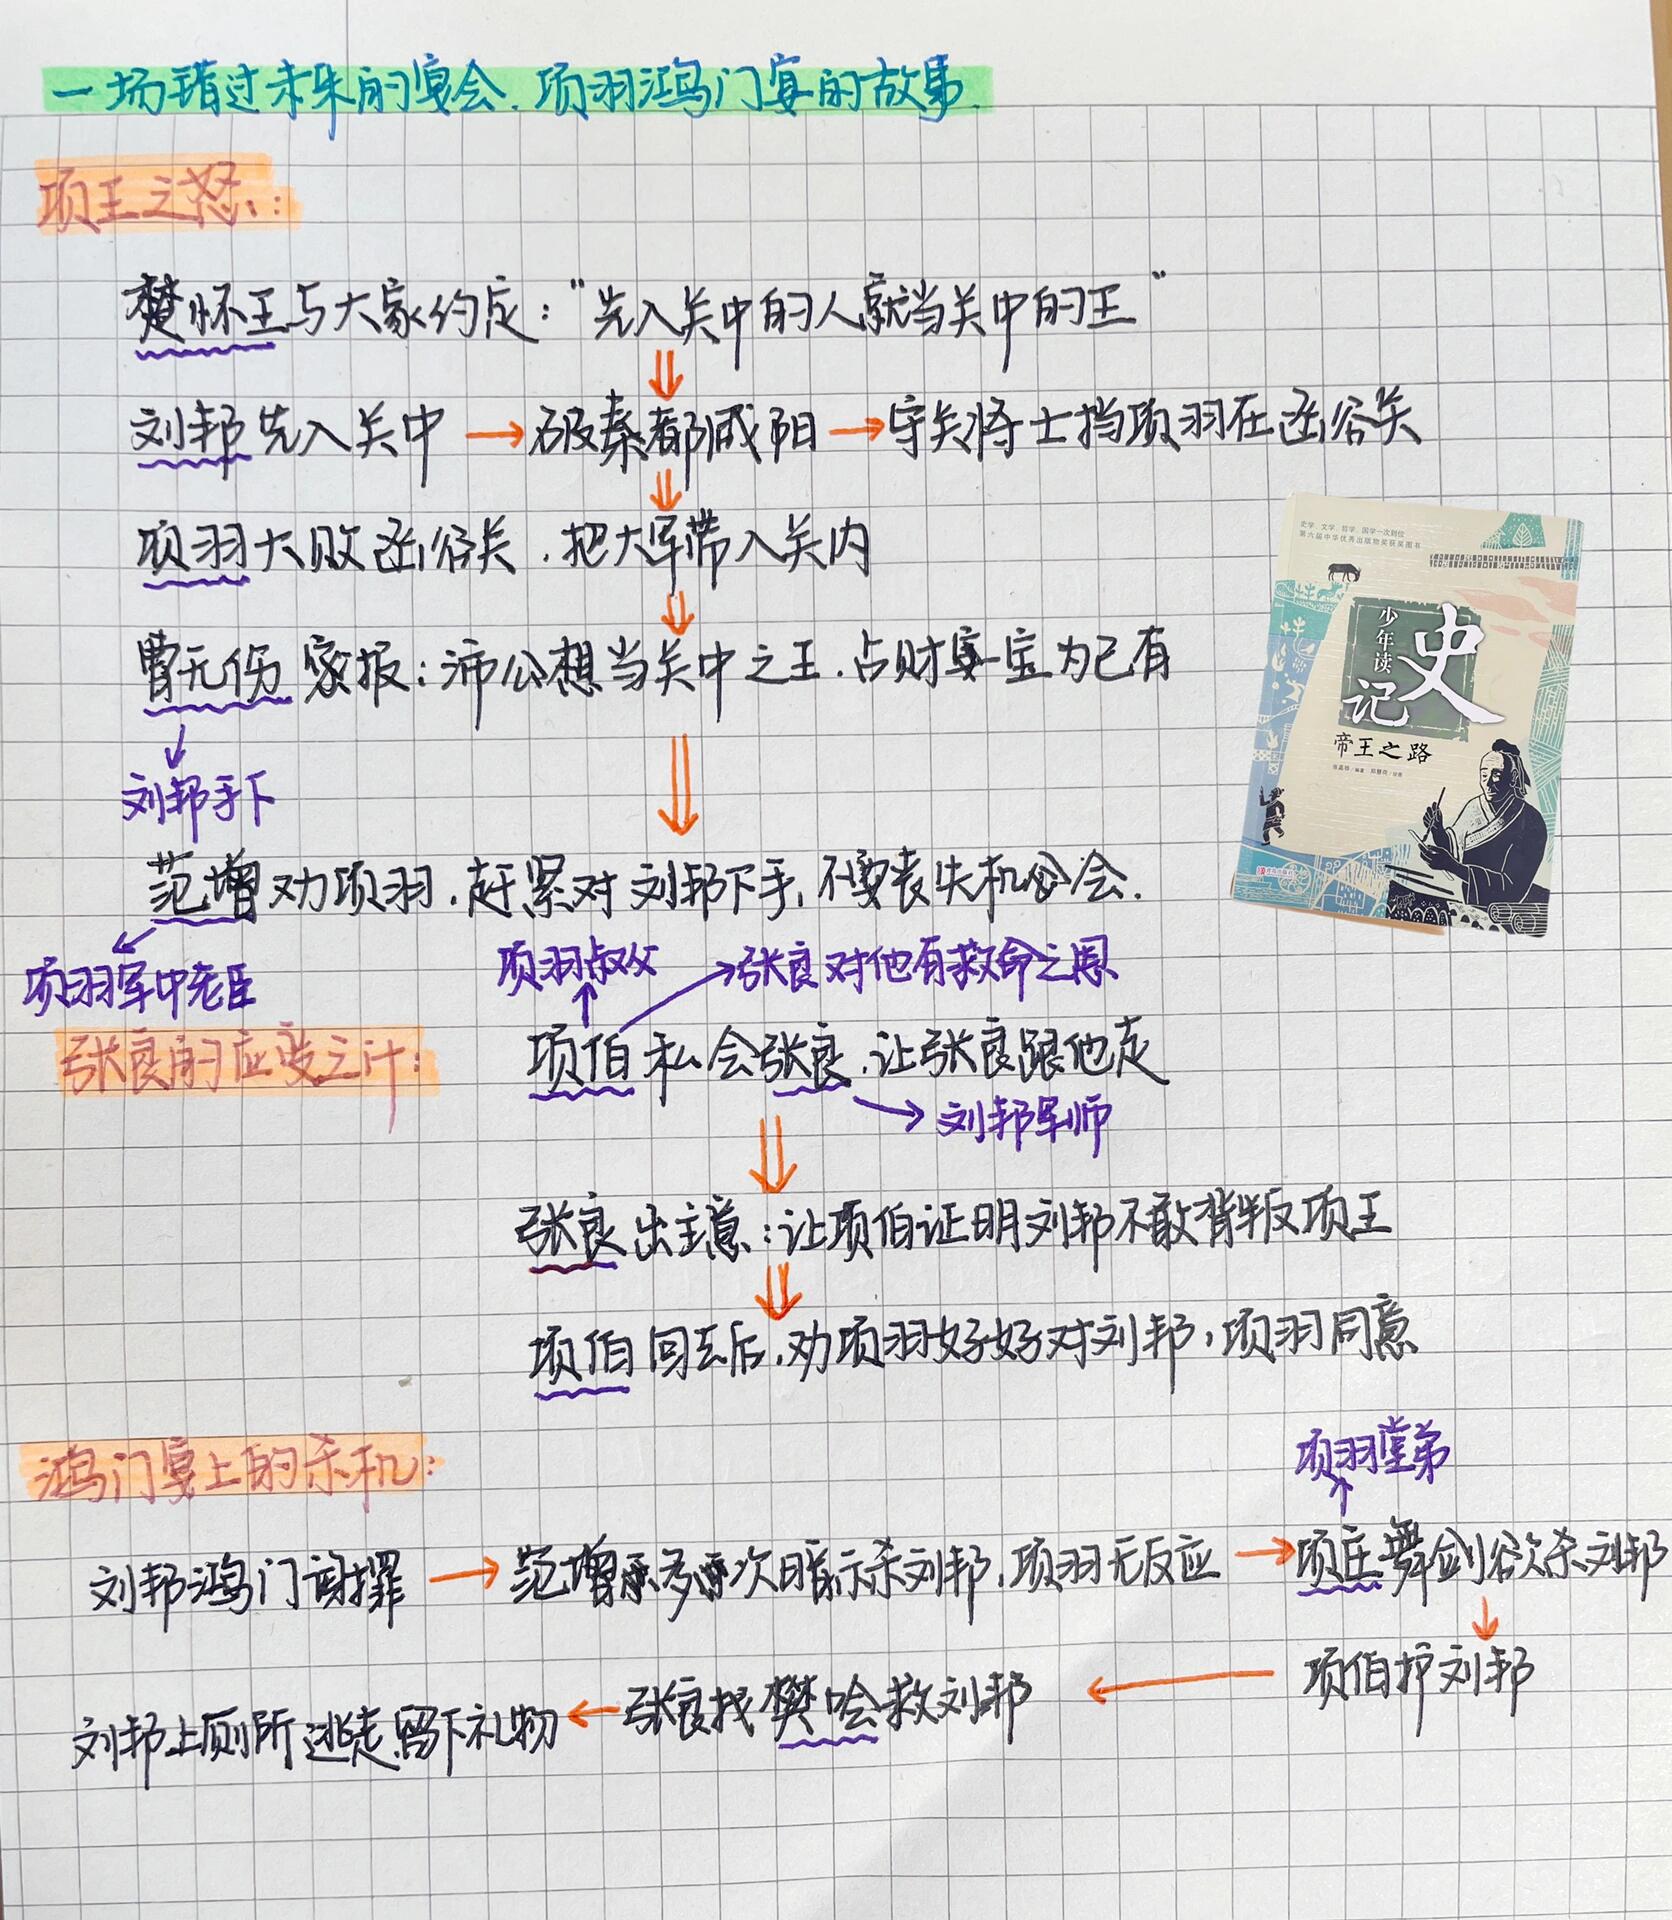 一场错过未来的宴会.项羽鸿门宴的故事.
项王之怒:
楚怀王与大家约定:“先入关中的人就当关中的王”
刘邦先入关中→破秦都咸阳→守关将士挡项羽在函谷关
项羽大败函谷关.把大军带入关内
曹无伤密报:沛公想当关中之王.占财宝为己有
刘邦手下
范增劝项羽.赶紧对刘邦下手,不要丧失机会.
项羽军中老臣
项羽叔父 张良对他有救命之恩
张良的应变之计:
项伯私会张良.让张良跟他走
刘邦军师
张良出主意:让项伯证明刘邦不敢背叛项王
项伯回去后.劝项羽好好对刘邦,项羽同意
鸿门宴上的杀机:
项羽堂弟
刘邦鸿门谢罪→范增多次暗示杀刘邦,项羽无反应→项庄舞剑欲杀刘邦
项伯护刘邦
张良找樊哙救刘邦
刘邦上厕所逃走.留下礼物
史学、文学、哲学、国学一次到位
第六届中华优秀出版物奖获奖图书
少年读
史记
帝王之路